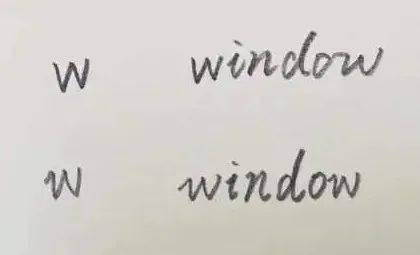 w window
w window